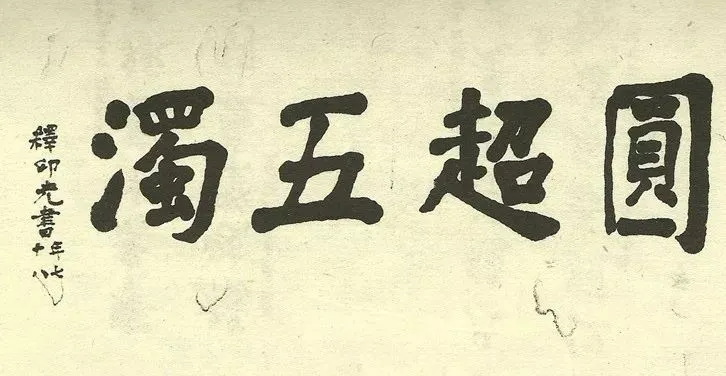 圓超五濁
釋印光書
年七
十八